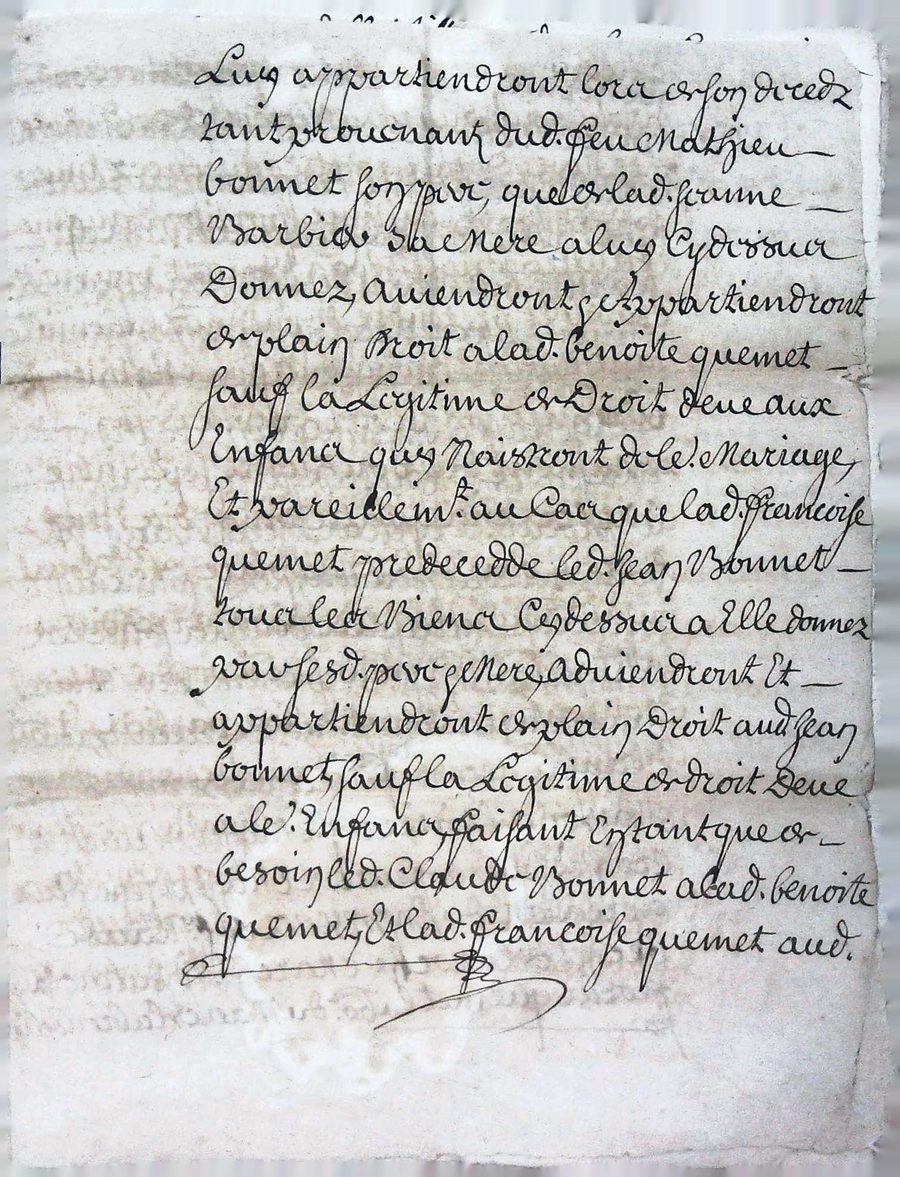 Luy appartiendront lors de son decedz
tant provenant dud. feu Mathieu
bonnet son pere, que de lad. jeanne
Barbier sa Mere a luy Cydessus
Donnez, aviendront et Appartiendront
de plain Droit a lad. benoite quemet
sauf la Legitime de Droit deue aux
Enfans quy Naistront dele.r Mariage,
Et pareillemt. au Cas que lad. francoise
quemet predecedde led. Jean Bonnet
tous les Biens Cydessus a Elle donnez
par sesd. pere et Mere, adviendront Et
appartiendront de plain Droit aud Jean
bonnet, sauf la Legitime de droit Deue
a le.r Enfans, faisant Entant que de
besoin led. Claude Bonnet a lad. benoite
quemet, Et lad. francoise quemet aud.